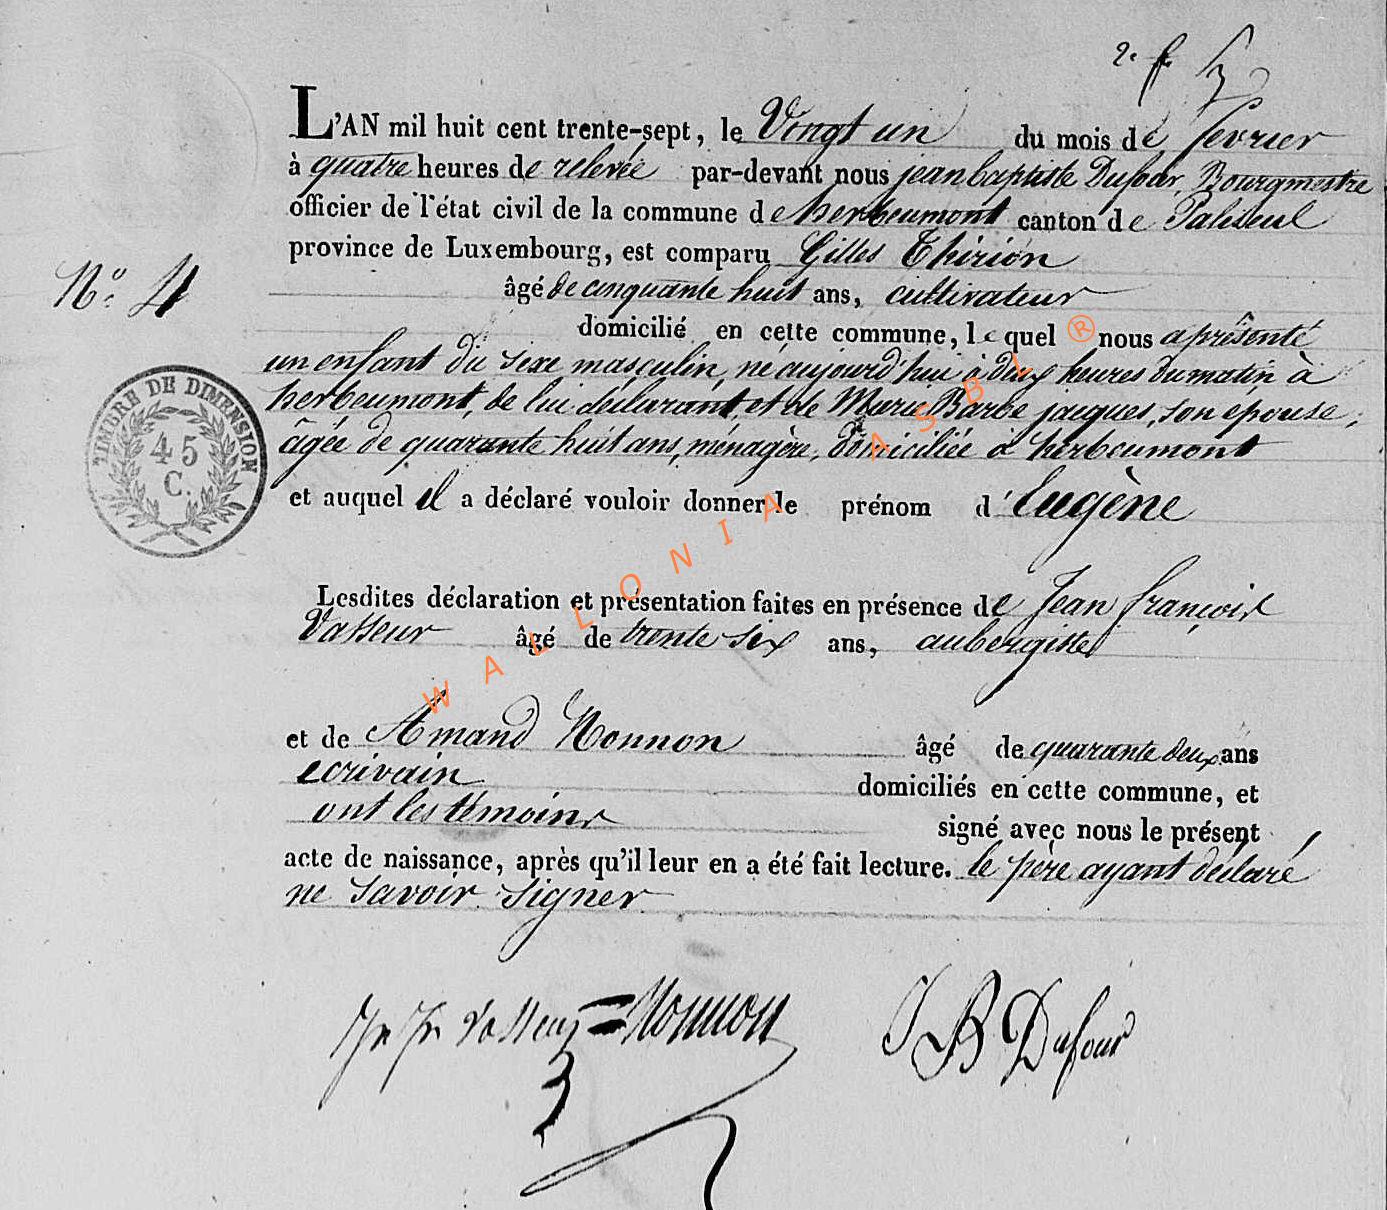 2e f.
L'AN mil huit cent trente-sept, le Vingt un du mois de fevrier
à quatre heures de relevée par-devant nous jean baptiste Dufour, Bourgmestre
officier de l'état civil de la commune de herbeumont canton de Paliseul
province de Luxembourg, est comparu Gilles Thirion
N° 4
âgé de cinquante huit ans, cultivateur
domicilié en cette commune, le quel nous a présenté
un enfant du sexe masculin, né aujourd'hui à deux heures du matin à
herbeumont, de lui déclarant, et de Marie Barbe jacques, son epouse,
âgée de quarante huit ans, ménagère, domiciliée à herbeumont
TIMBRE DE DIMENSION
45
C.
et auquel il a déclaré vouloir donner le prénom d'Eugène
Lesdites déclaration et présentation faites en présence de Jean françois
Vasseur âgé de trente six ans, aubergiste
et de Amand Nonnon âgé de quarante deux ans
ecrivain domiciliés en cette commune, et
ont les témoins signé avec nous le présent
acte de naissance, après qu'il leur en a été fait lecture. le père ayant déclaré
ne savoir signer
Jn Fr Vasseur = Nonnon J B Dufour
WALLONIA ASBL ®